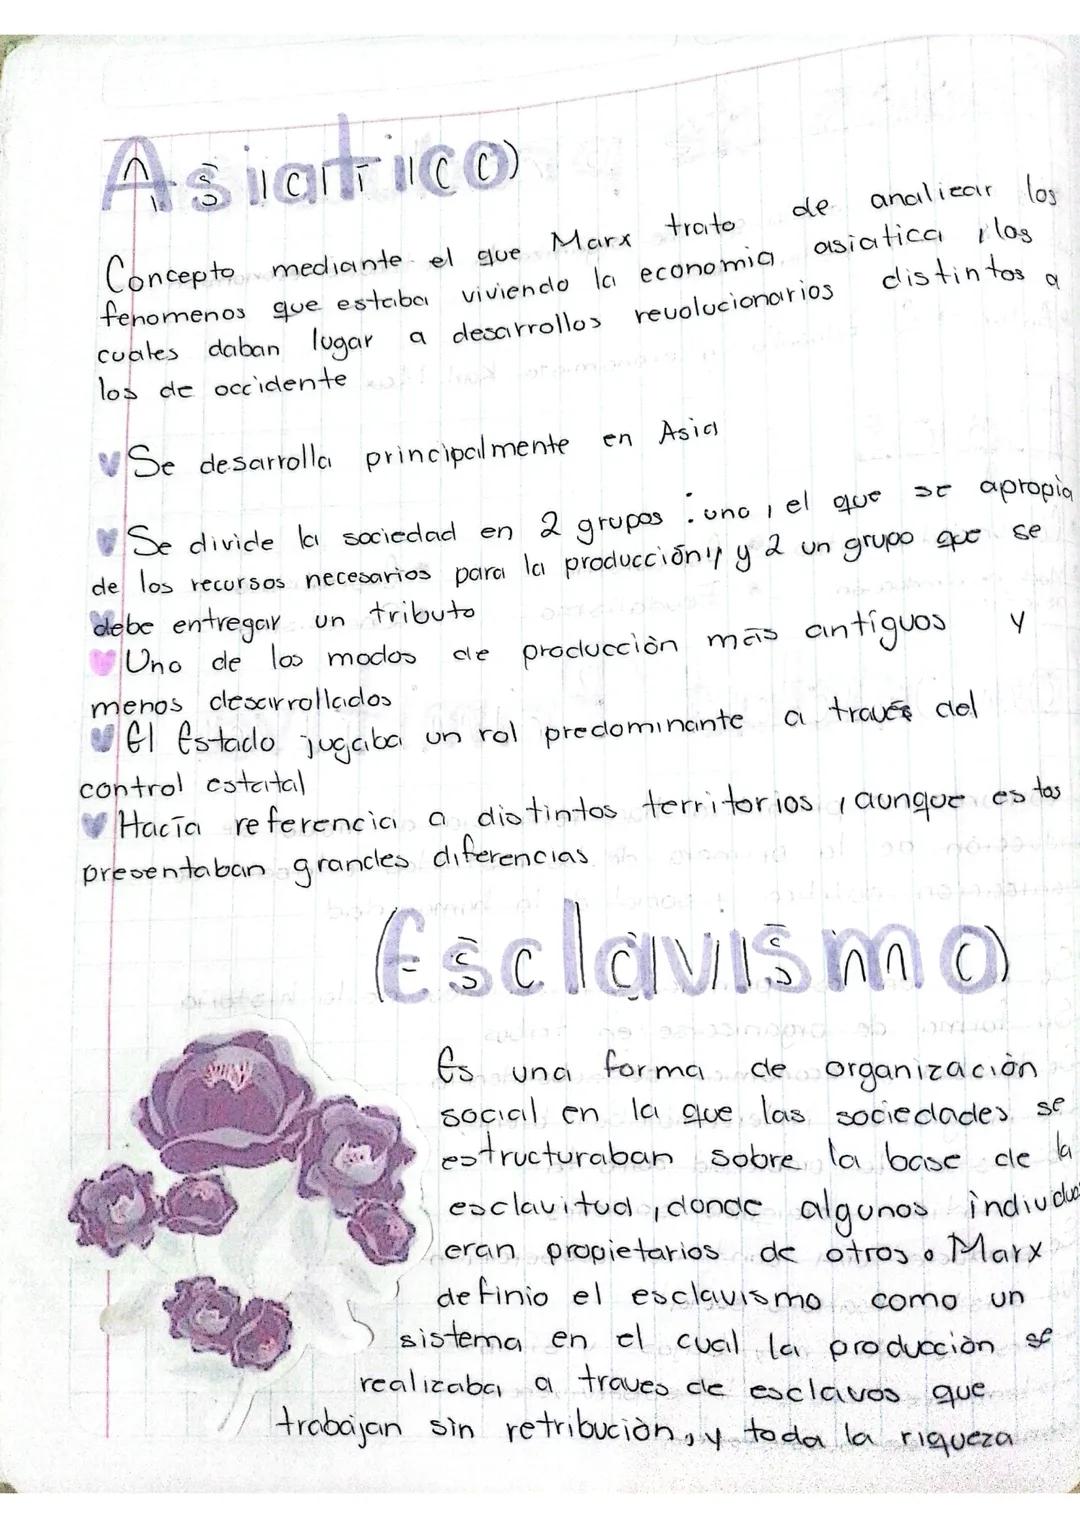 Asiatico
Concepto mediante el que Marx trato de analizar los
fenomenos que estaba viviendo la economia asiatica, los
cuales daban lugar a desarrollos revolucionarios distintos a
los de occidente
Se desarrolla principalmente en Asia
Se divide la sociedad en 2 grupos: uno, el que se apropia
de los recursos necesarios para la producción, y 2 un grupo que se
debe entregar un tributo
Uno de los modos de producciòn mas antíguos y
menos desarrollados
El Estado jugaba un rol predominante a través del
control estatal
Hacía referencia a distintos territorios, aunque estos
presentaban grandes diferencias
Esclavismo
Es una forma de organizaciòn
social en la que las sociedades se
estructuraban sobre la base de la
esclavitud, donde algunos
eran propietarios de otros. Marx
definio el esclavismo como un
sistema en el cual la producciòn se
realizaba a traves de esclavos que
trabajan sin retribuciòn, y toda la riqueza